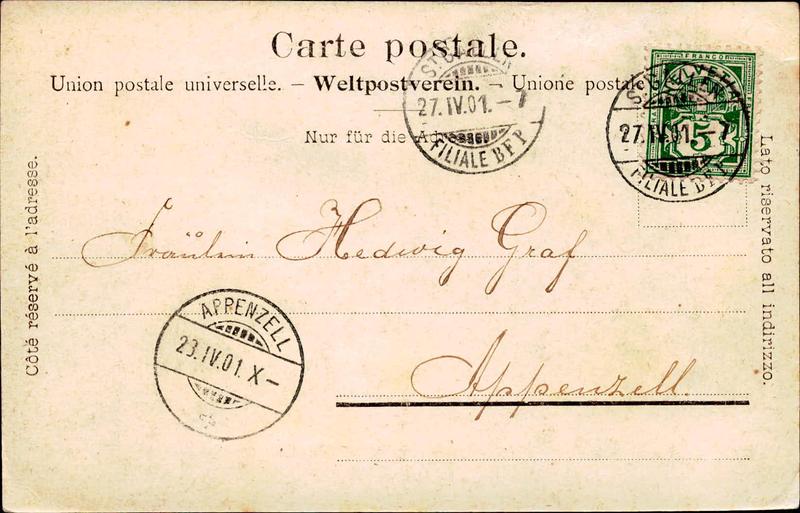 Carte postale.
Union postale universelle. – Weltpostverein. – Unione postale
Nur für die Adresse
Côté réservé à l'adresse.
Lato riservato all indirizzo.
FRANCO
HELVETIA
5
27.IV.01.–7
FILIALE BFP
27.IV.01.–7
FILIALE BFP
Fräulein Hedwig Graf
Appenzell.
APPENZELL
23.IV.01.X–